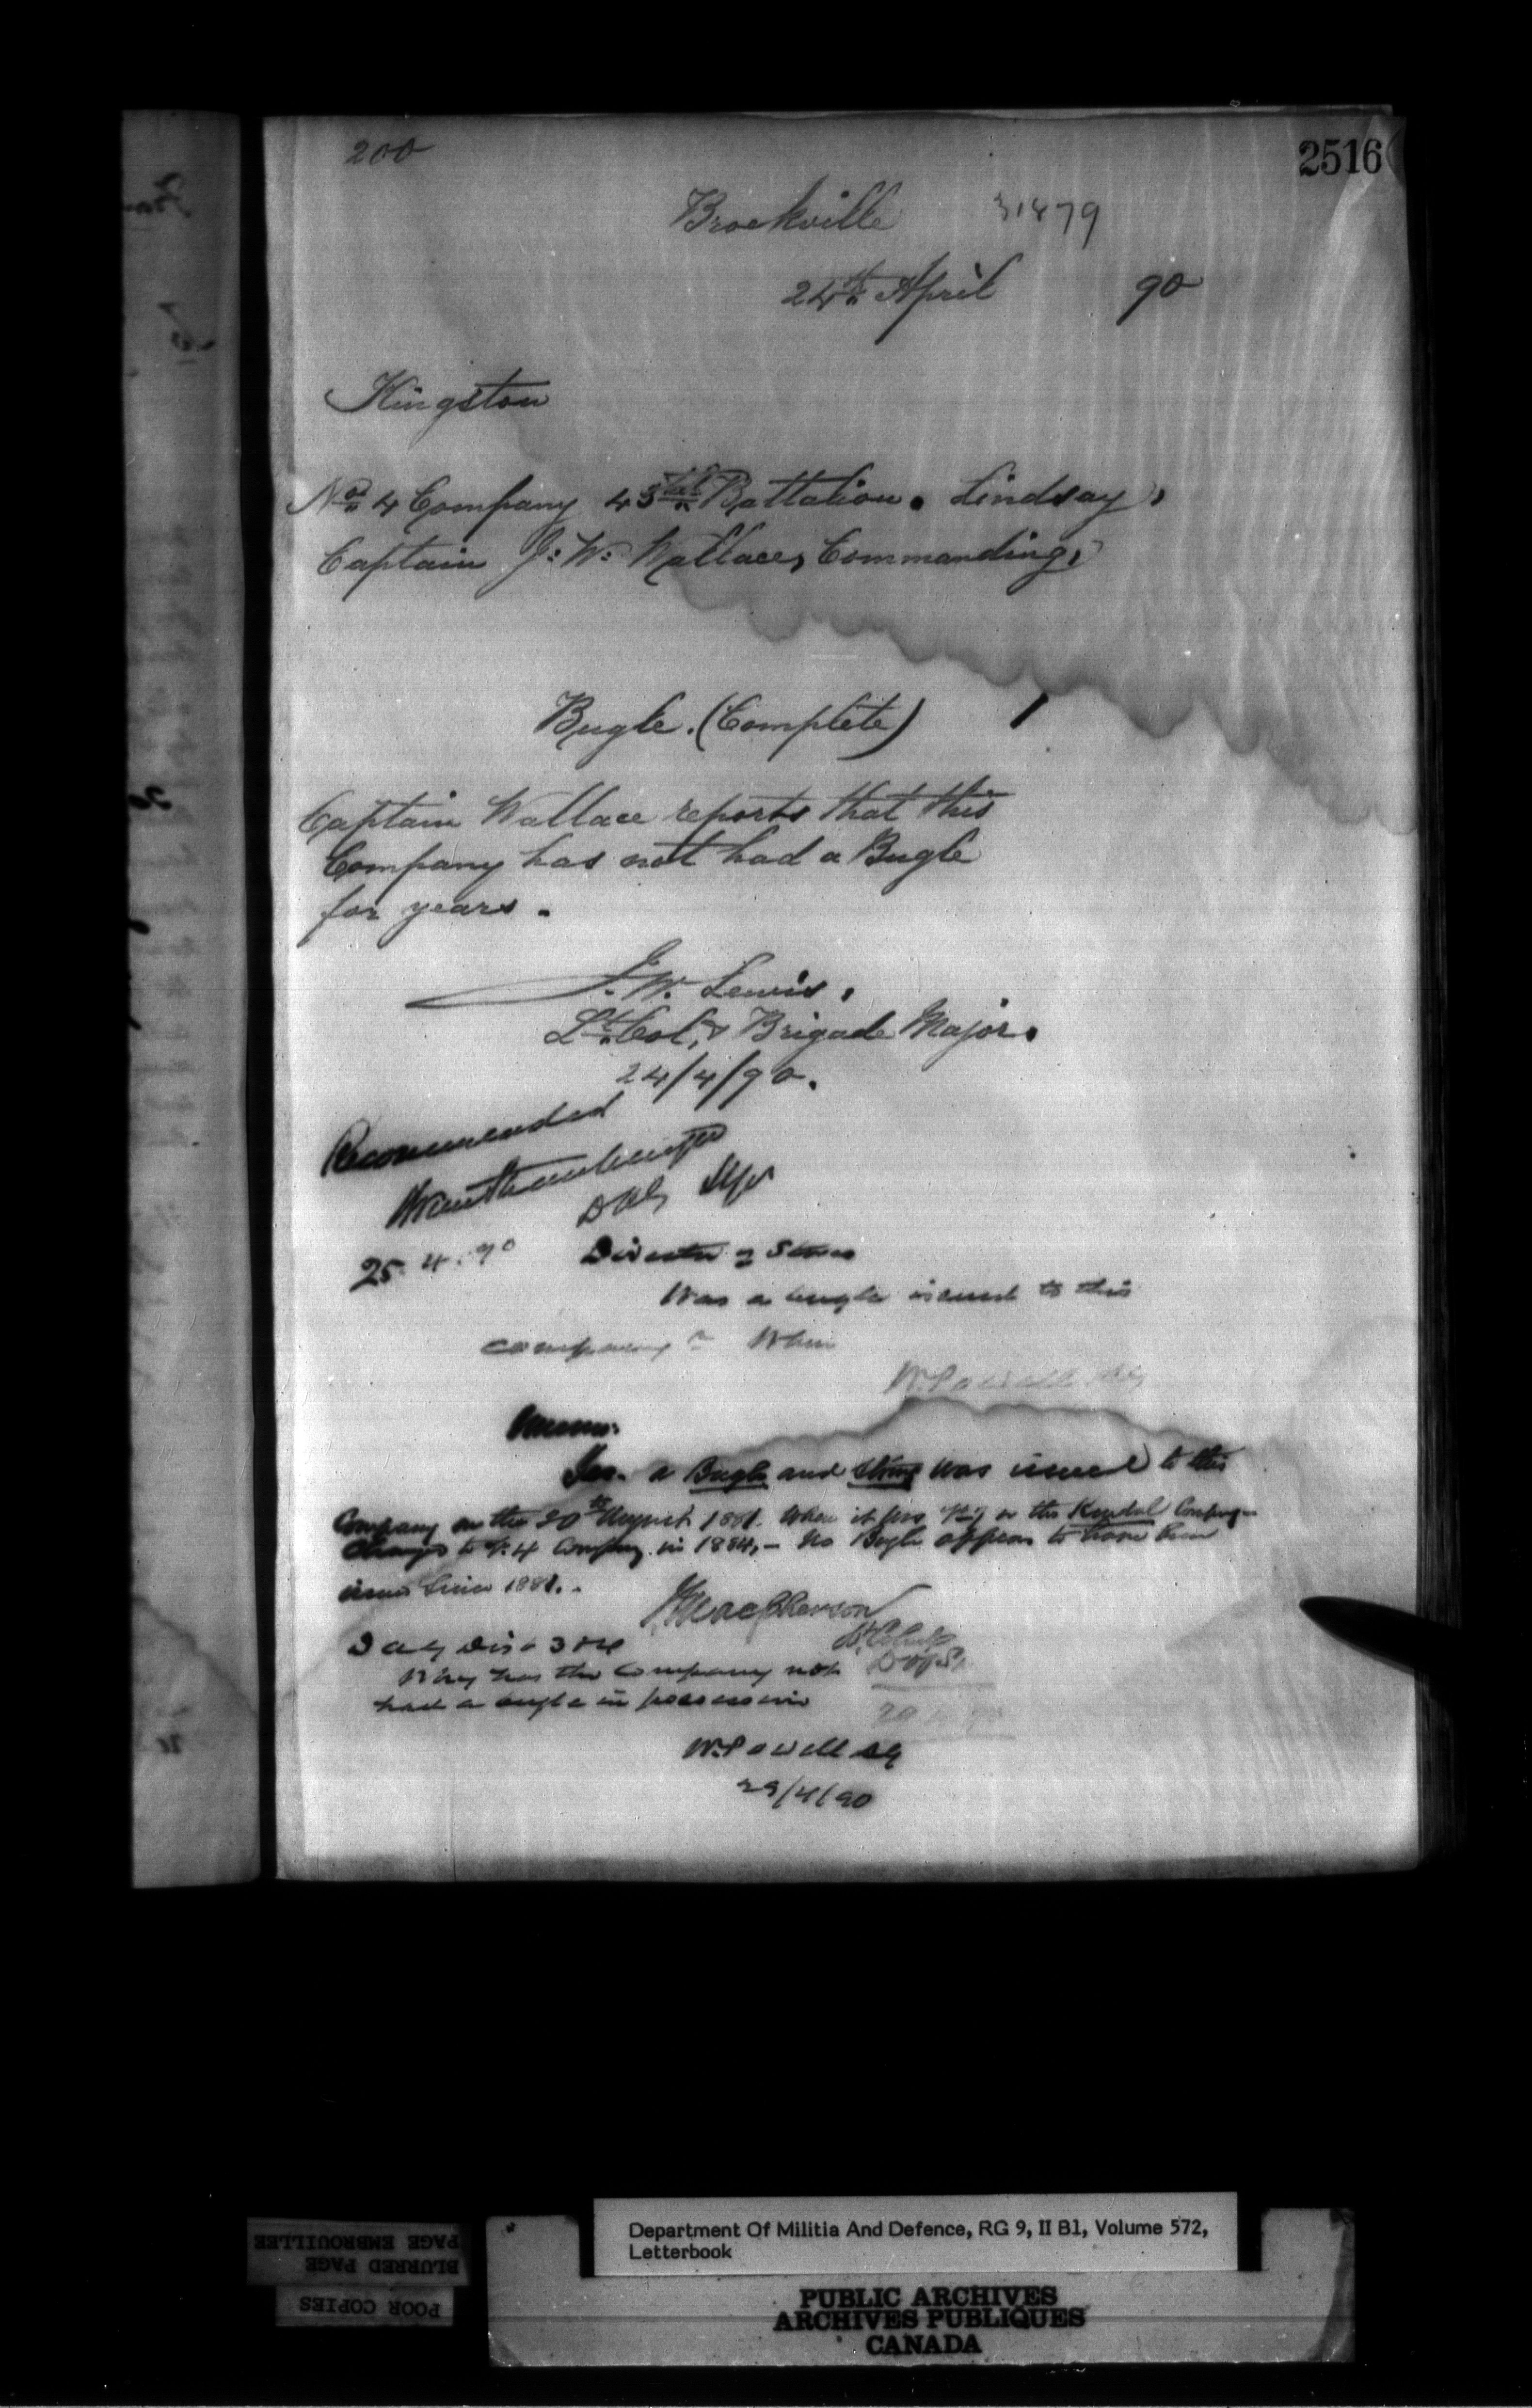 200
2516
Brockville 31879
24th April 90
Kingston
No 4 Company 45th Battalion. Lindsay,
Captain J. W. Wallace, Commanding,
Bugle. (Complete) 1
Captain Wallace reports that this
Company has not had a Bugle
for years.
J. W. Lewis,
Lt. Col, Brigade Major.
24/4/90.
Recommended
DAG
25.4.90
Director of Stores
Was a bugle issued to this
company? When
W. Powell AG
Memo:
Yes. a Bugle and String was issued to this
Company on the 20th August 1881. When it was No 7 or the Kendal Company
changed to No. 4 Company in 1884, - No Bugle appears to have been
issued since 1881.
J Macpherson
Lt. Col
D of S.
DAG Dis 3 & 4
Why has the Company not
had a bugle in possession
W. Powell AG
29/4/90
Department Of Militia And Defence, RG 9, II B1, Volume 572,
Letterbook
PAGE EMBROUILLEE
BLURRED PAGE
POOR COPIES
PUBLIC ARCHIVES
ARCHIVES PUBLIQUES
CANADA